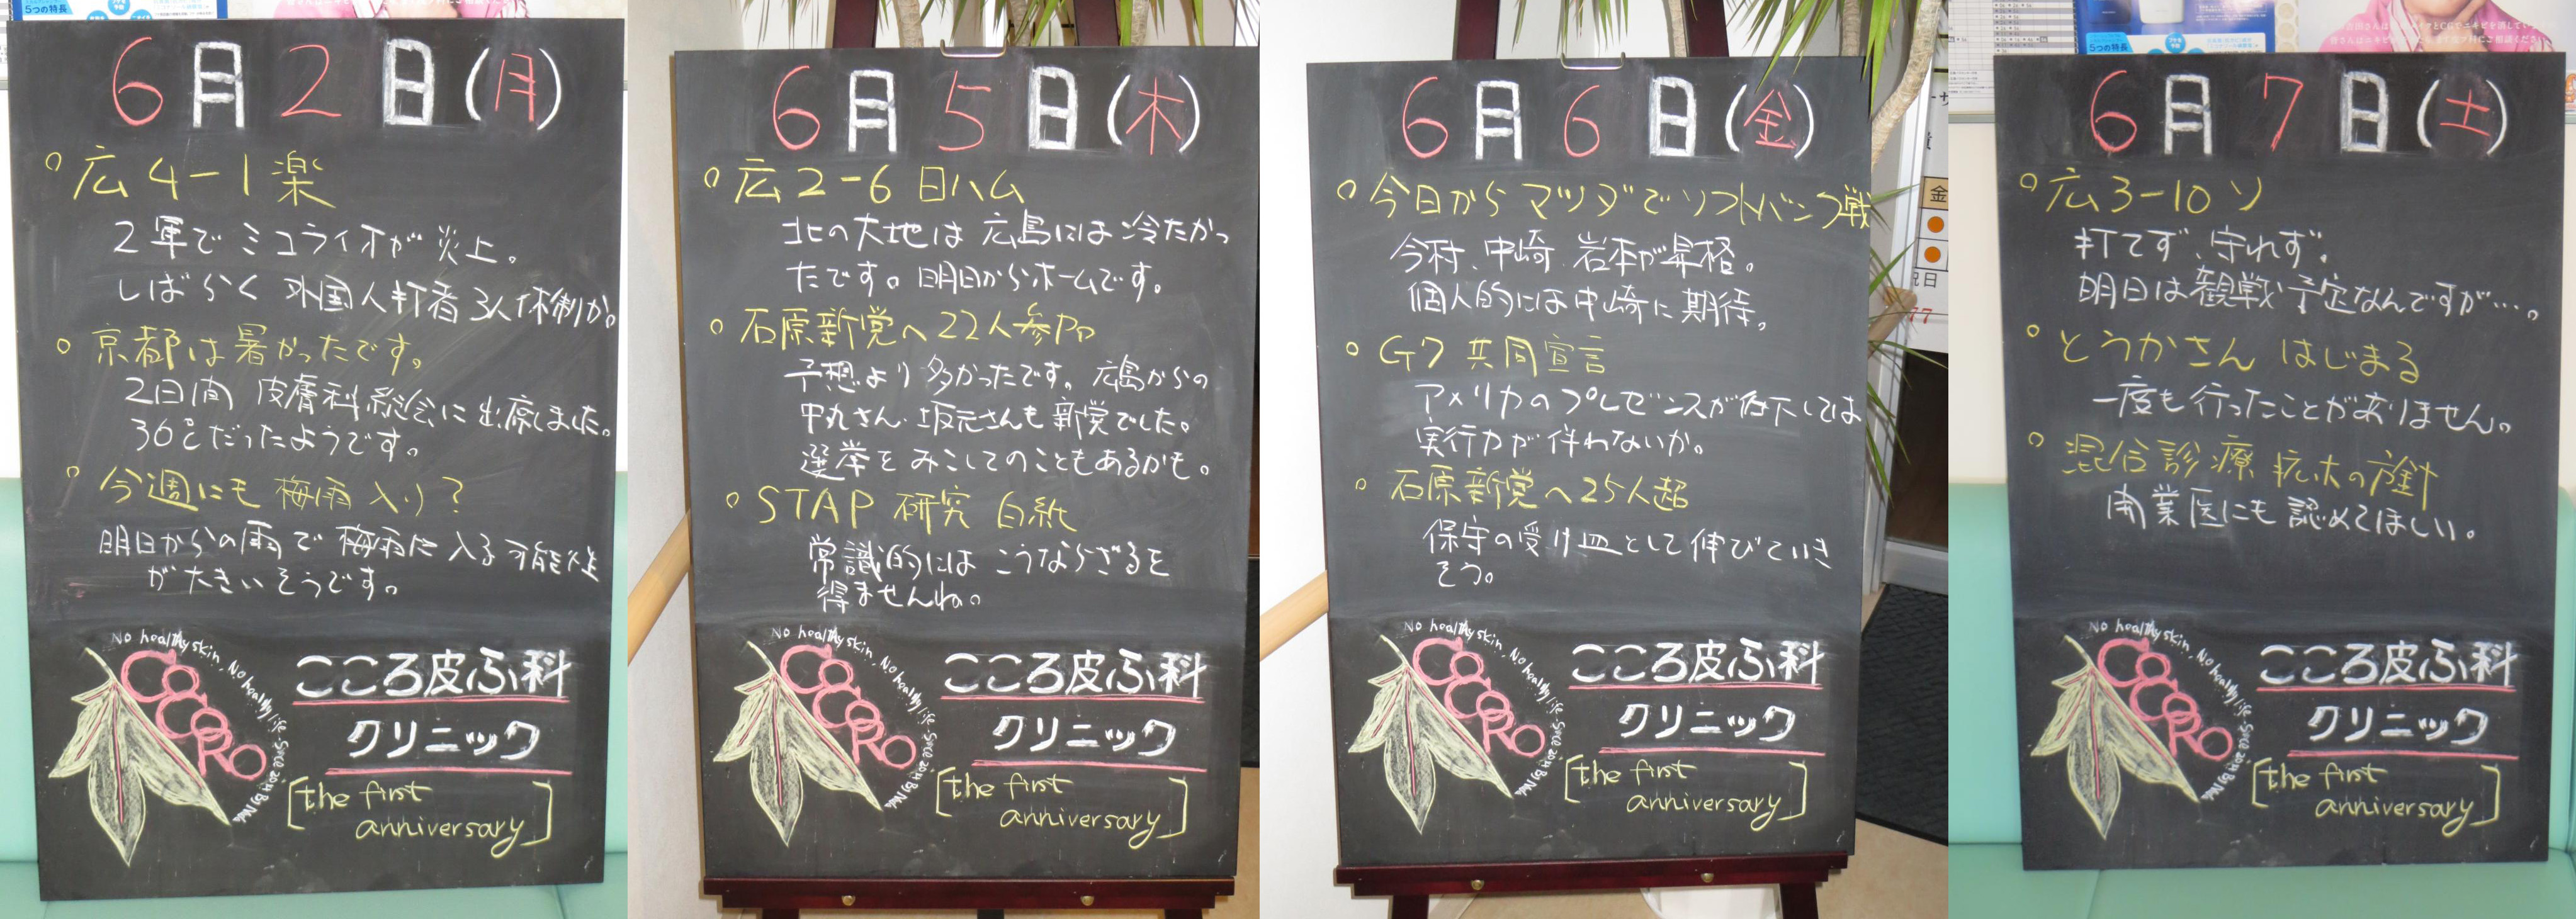 6月2日(月)
○広4-1楽
2軍でミコライオが炎上。
しばらく外国人打者3人体制か。
○京都は暑かったです。
2日間 皮膚科総会に出席しました。
36℃だったようです。
○今週にも梅雨入り?
明日からの雨で梅雨に入る可能性
が大きいそうです。
No healthy skin, No healthy life.
COCORO
こころ皮ふ科
クリニック
[the first
anniversary]
6月5日(木)
○広2-6日ハム
北の大地は広島には冷たかっ
たです。明日からホームです。
○石原新党へ22人参加
予想より多かったです。広島からの
中丸さん、坂元さんも新党でした。
選挙をみこしてのこともあるかも。
○STAP研究 白紙
常識的にはこうならざるを
得ませんね。
No healthy skin, No healthy life.
COCORO
こころ皮ふ科
クリニック
[the first
anniversary]
6月6日(金)
○今日からマツダでソフトバンク戦
今村、中崎、岩本が昇格。
個人的には中崎に期待。
○G7共同宣言
アメリカのプレゼンスが低下しては
実行力が伴わないか。
○石原新党へ25人超
保守の受け皿として伸びていき
そう。
No healthy skin, No healthy life.
COCORO
こころ皮ふ科
クリニック
[the first
anniversary]
6月7日(土)
○広3-10ソ
打てず、守れず。
明日は観戦予定なんですが…。
○とうかさん はじまる
一度も行ったことがありません。
○混合診療拡大の方針
開業医にも認めてほしい。
No healthy skin, No healthy life.
COCORO
こころ皮ふ科
クリニック
[the first
anniversary]
5つの特長
5つの特長
金
祝日
77